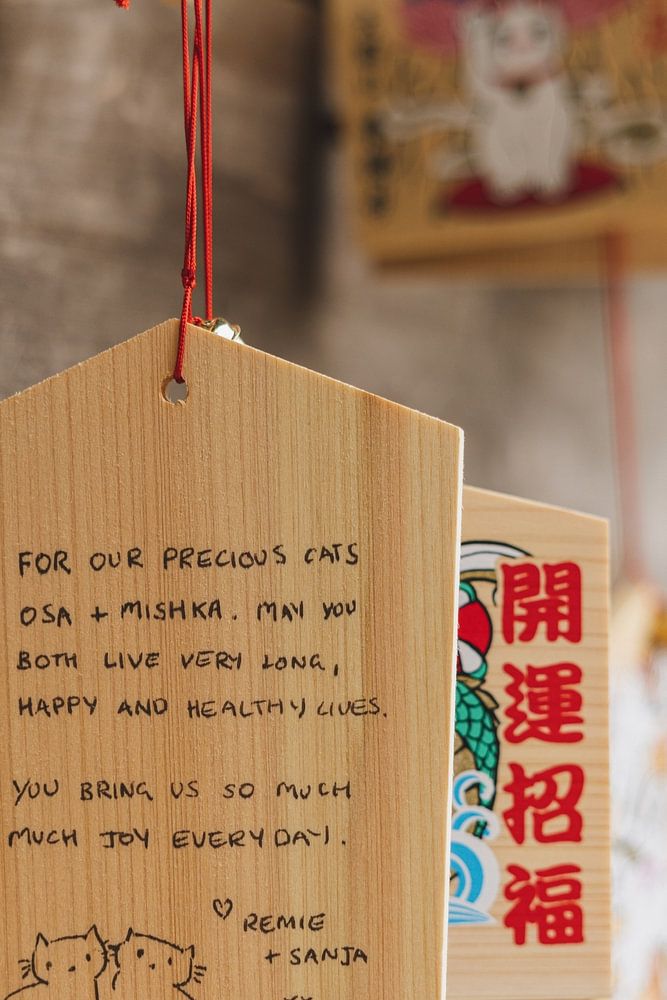 FOR OUR PRECIOUS CATS
OSA + MISHKA. MAY YOU
BOTH LIVE VERY LONG,
HAPPY AND HEALTHY LIVES.
YOU BRING US SO MUCH
MUCH JOY EVERYDAY.
♡ REMIE
+ SANJA
開運招福